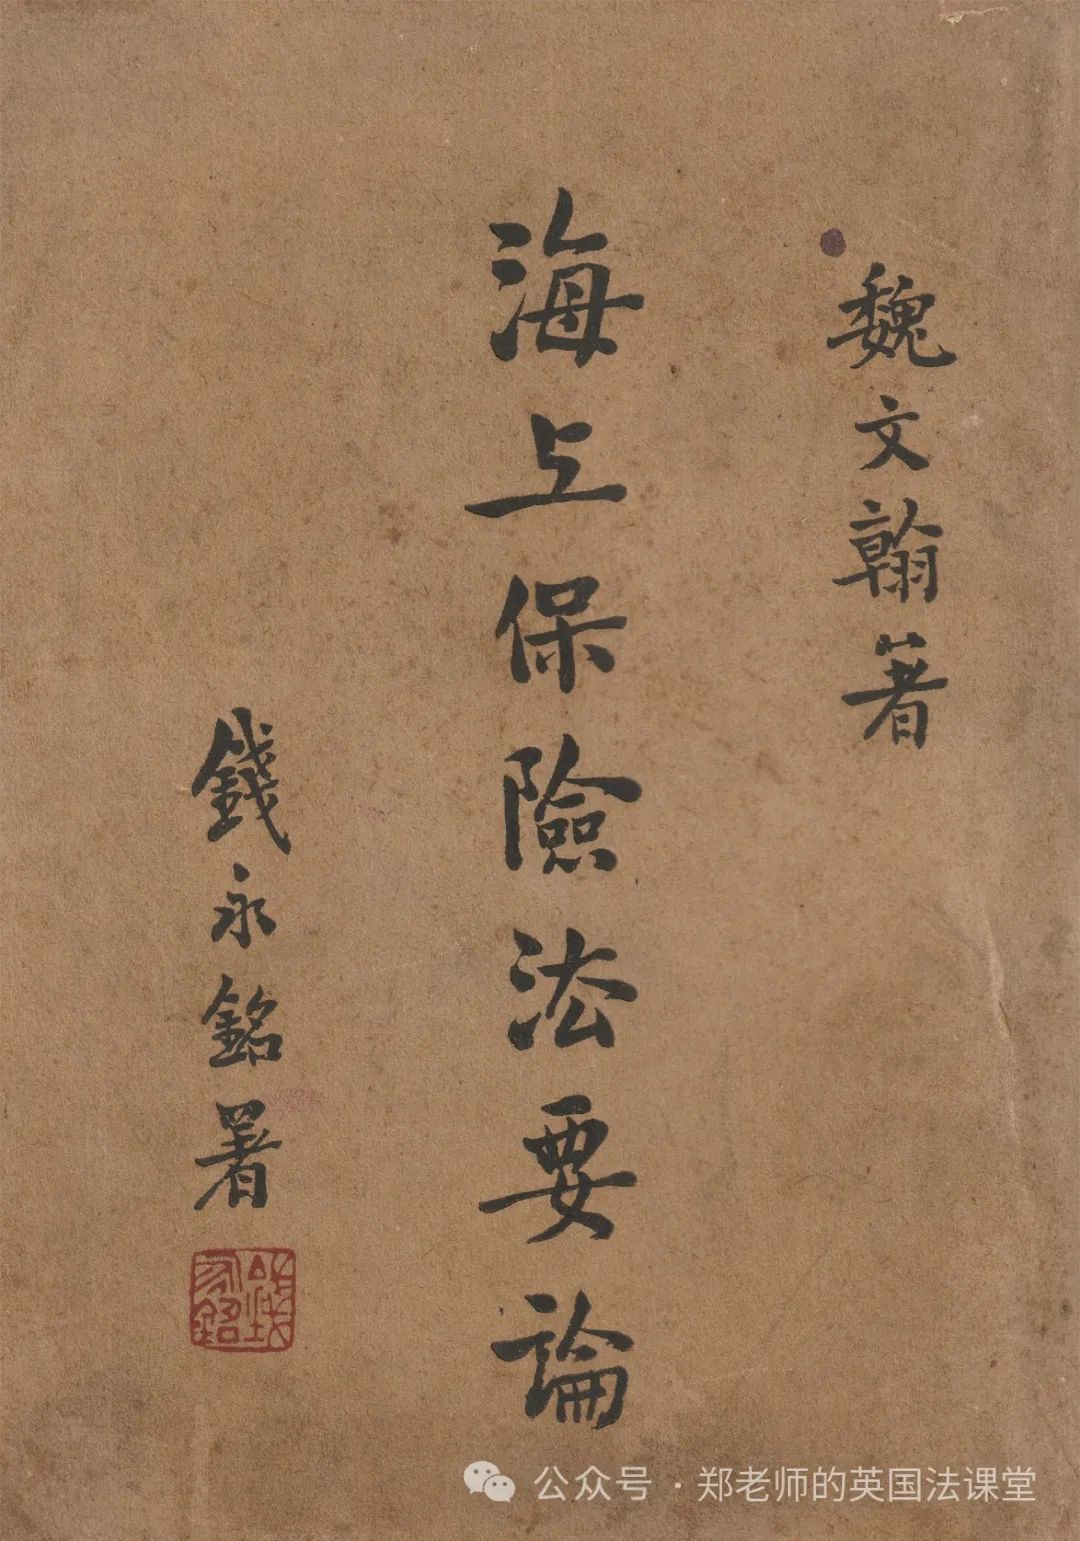 魏文翰著
海上保險法要論
錢永銘署
公众号·郑老师的英国法课堂